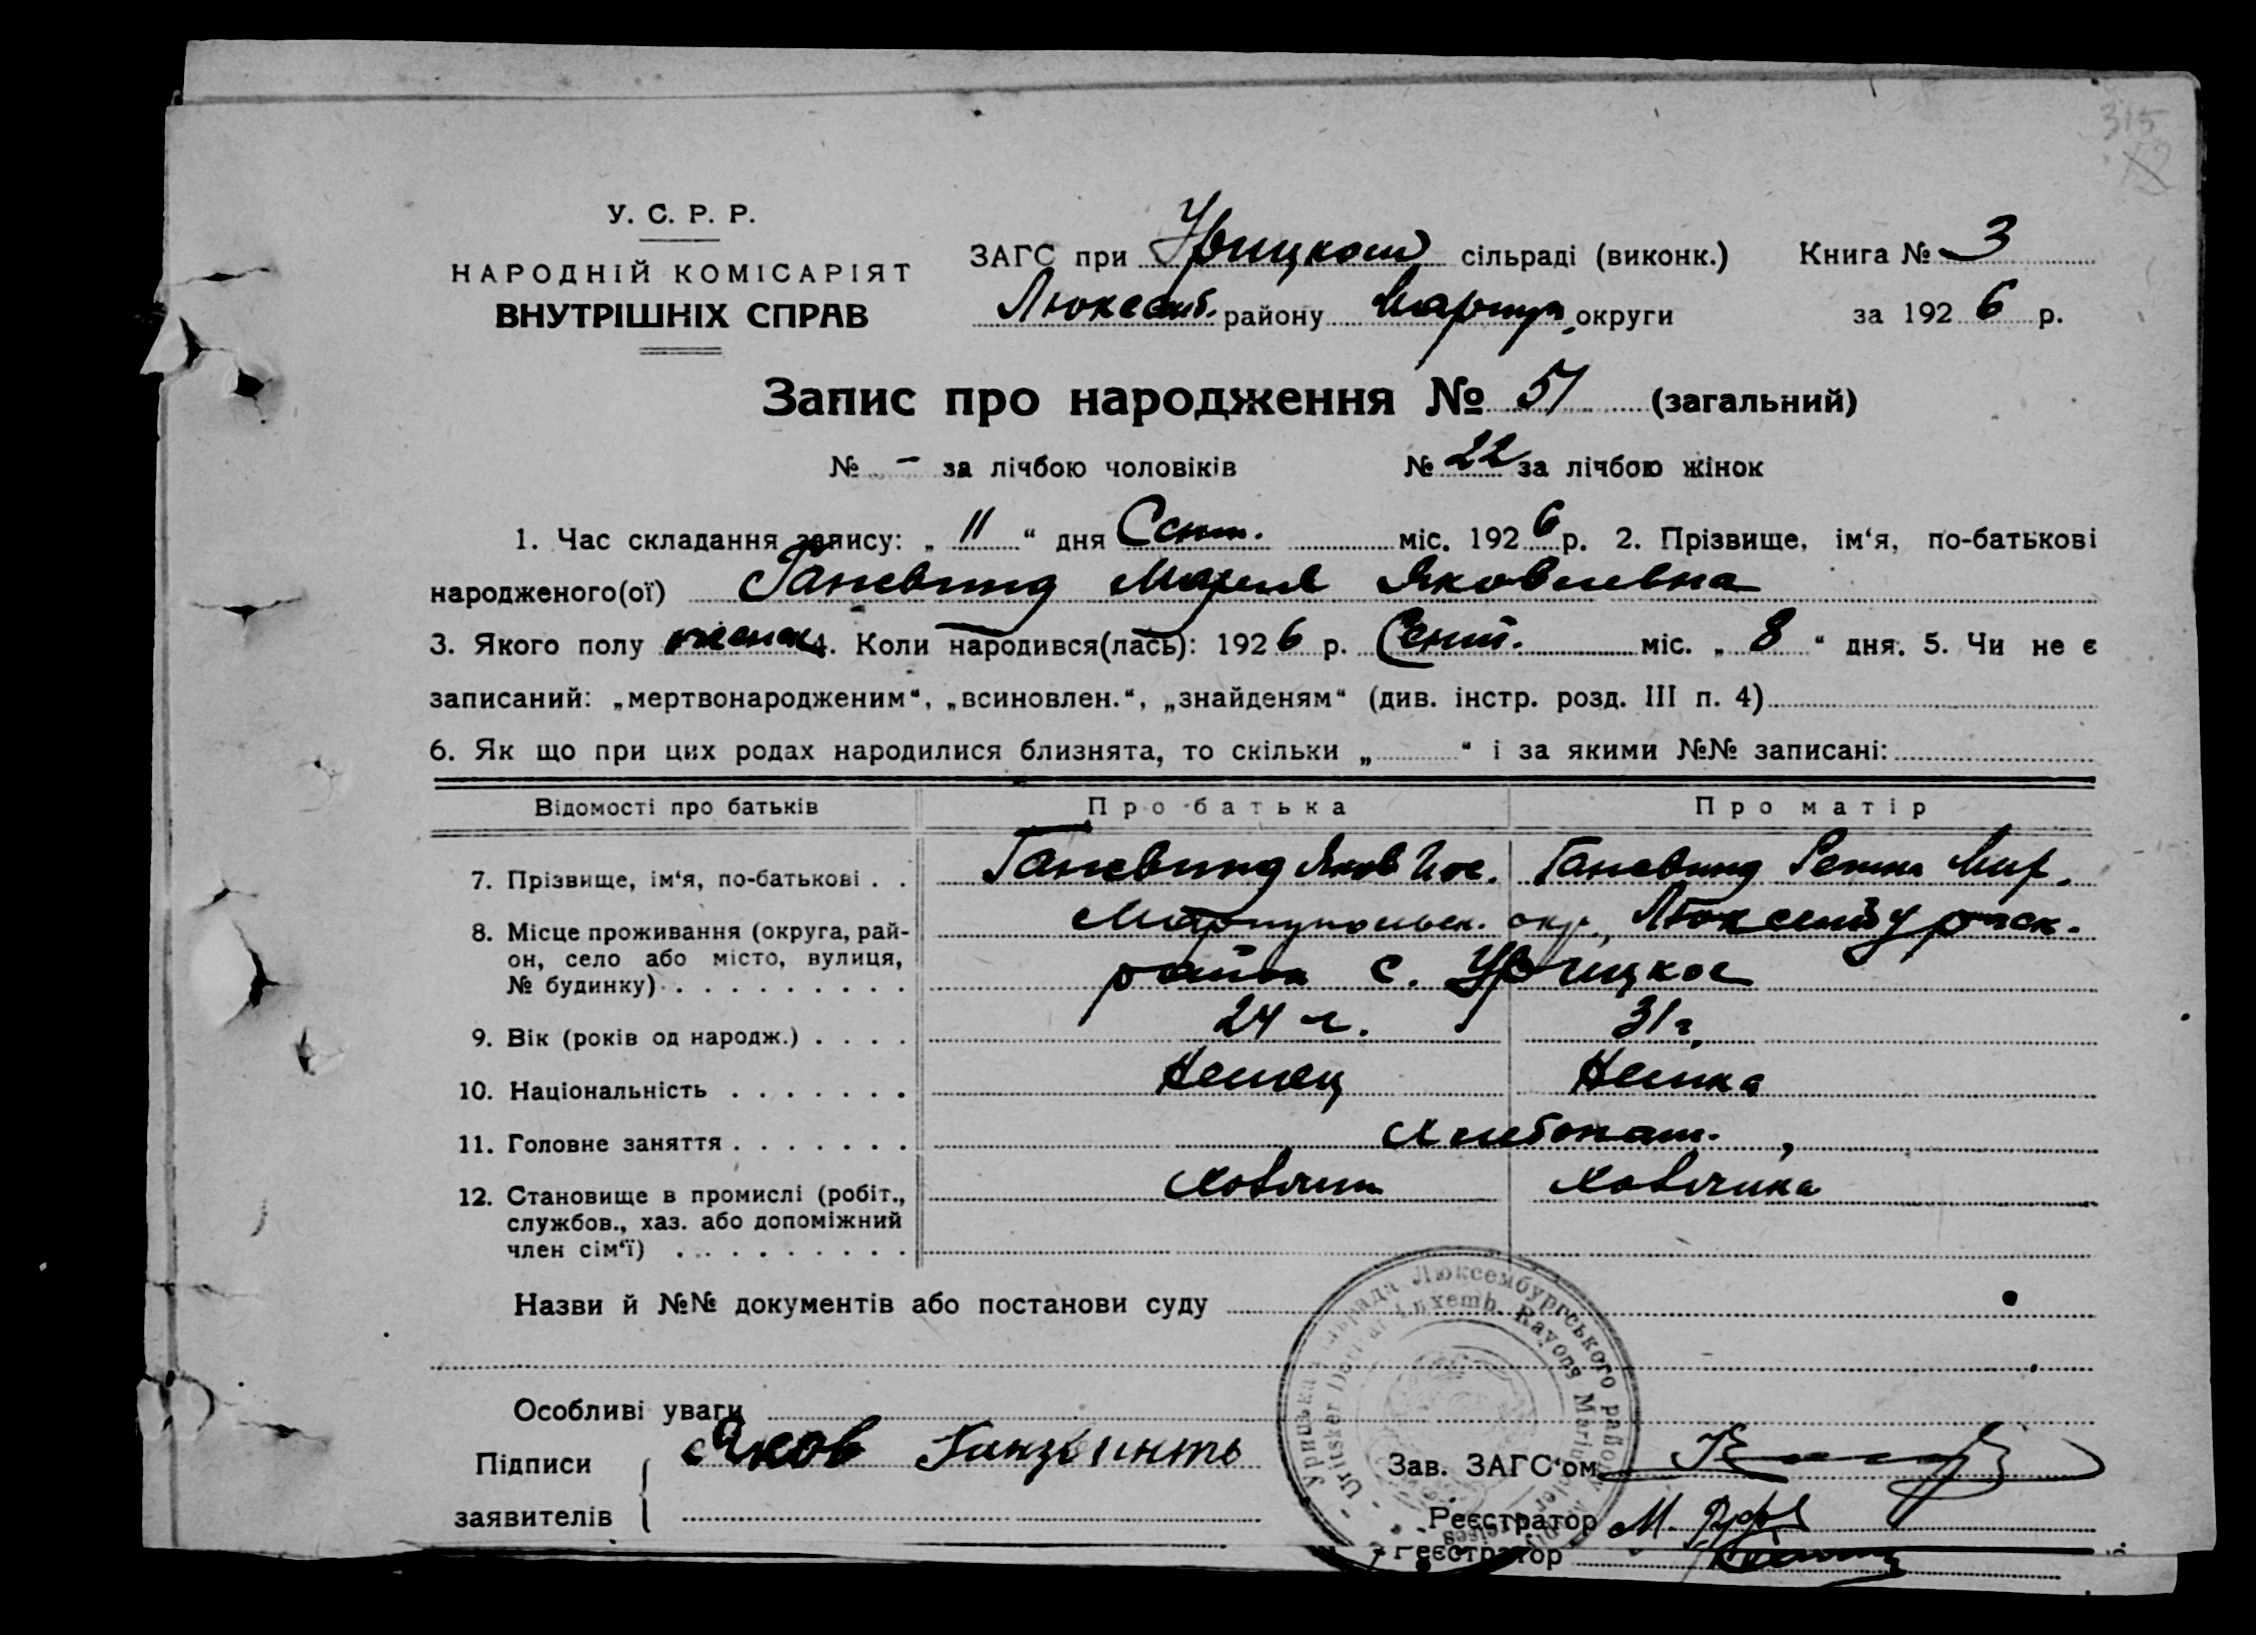 315
У. С. Р. Р.
НАРОДНІЙ КОМІСАРІЯТ
ВНУТРІШНІХ СПРАВ
ЗАГС при Урицком сільраді (виконк.) Книга № 3
Люксемб. району Мариуп. округи за 1926 р.
Запис про народження № 51 (загальний)
№ - за лічбою чоловіків № 22 за лічбою жінок
1. Час складання запису: „ 11 “ дня Сент. міс. 1926 р. 2. Прізвище, ім‘я, по-батькові
народженого(ої) Ганзвинд Мария Яковлевна
3. Якого полу женск 4. Коли народився(лась): 1926 р. Сент. міс. „ 8 “ дня. 5. Чи не є
записаний: „мертвонародженим“, „всиновлен.“, „знайденям“ (див. інстр. розд. III п. 4)
6. Як що при цих родах народилися близнята, то скільки „ “ і за якими №№ записані:
Відомості про батьків Про батька Про матір
7. Прізвище, ім‘я, по-батькові . . Ганзвинд Яков Иос. Ганзвинд
8. Місце проживання (округа, рай-
он, село або місто, вулиця,
№ будинку) . . . . . . . . .
Мариупольск. окр., Люксембургск.
район с. Урицкое
9. Вік (років од народж.) . . . . 24 г. 31 г.
10. Національність . . . . . . . Немец Немка
11. Головне заняття . . . . . . . Хлебопаш.
12. Становище в промислі (робіт.,
службов., хаз. або допоміжний
член сім‘ї) . . . . . . . . .
Хозяин Хозяйка
Назви й №№ документів або постанови суду
Урицька сільрада Люксембургського району
Uritsker Dorfrat Luxemb. Rayons Mariupoler Kreises
Особливі уваги
Підписи
заявителів
Яков Ганзвинть
Зав. ЗАГС‘ом
Реєстратор М.
Реєстратор